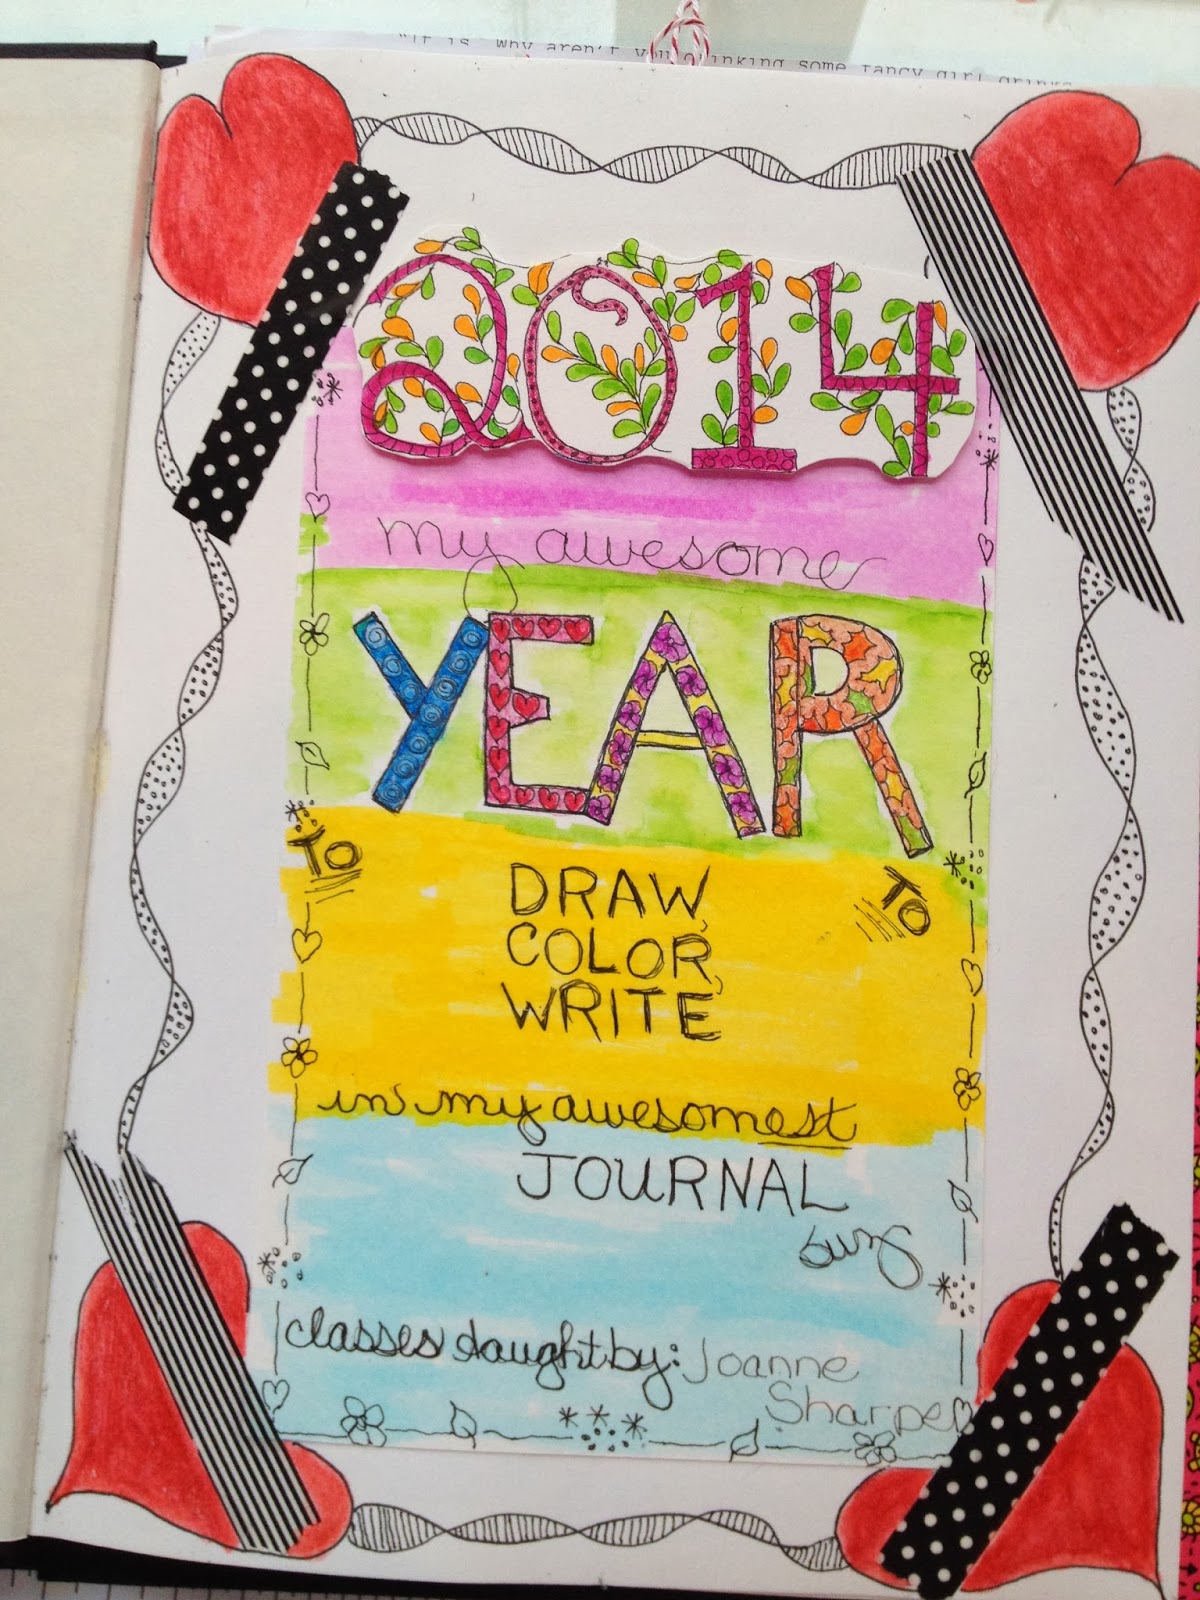 "It is. Why aren't you drinking some fancy girl drink
2014
my awesome
YEAR
TO
TO
DRAW,
COLOR,
WRITE,
in my awesomest
JOURNAL
classes taught by: Joanne
Sharpe